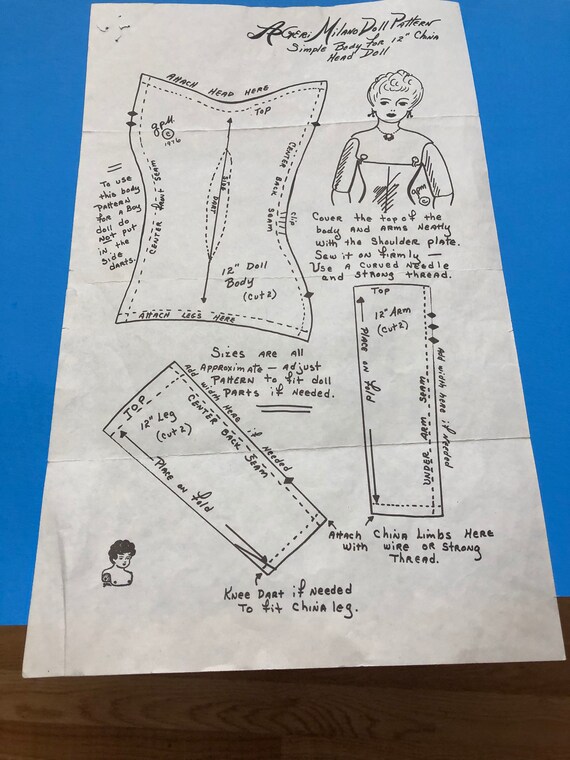 A Geri Milano Doll Pattern
Simple Body for 12" China
Head Doll
Attach Head Here
Top
gpM
©
1976
Center Front Seam
Side Dart
Center Back Seam
clip
12" Doll
Body
(cut 2)
Attach Legs Here
To use
this body
Pattern
for a Boy
doll do
Not put
in the
side
darts.
gpm
©
Cover the top of the
body and arms neatly
with the shoulder plate.
Sew it on firmly —
Use a curved needle
and strong thread.
Sizes are all
Approximate — adjust
Pattern to fit doll
parts if needed.
Top
12" Arm
(cut 2)
Place on fold
Under Arm Seam
Add width here if needed
Top
12" Leg
(cut 2)
Add width Here if needed
Center Back Seam
Place on fold
Attach China Limbs Here
with wire or Strong
Thread.
Knee Dart if Needed
To fit China leg.